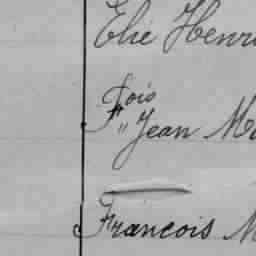 Elie Henri
Fois
" Jean Ma
Francois M